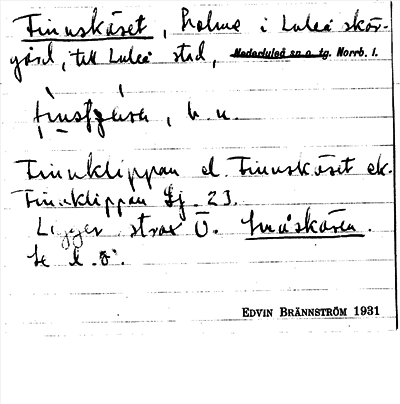 Finnskäret, holme i Luleå skär-
gård, till Luleå stad, Nederluleå sn o. tg. Norrb. l.
b. u.
Finnklippan el. Finnskäret ek.
Finnklippan Sj. 23.
Ligger strax Ö. Småskären.
Se d. o.
EDVIN BRÄNNSTRÖM 1931